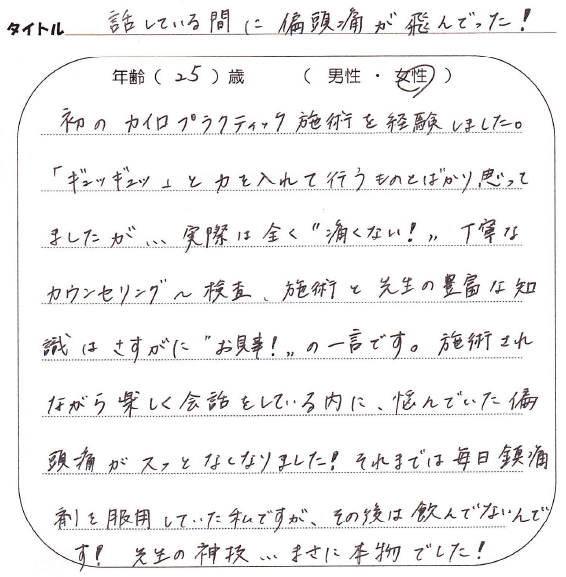 タイトル 話している間に偏頭痛が飛んでった!
年齢(25)歳 (男性・女性)
初のカイロプラクティック施術を経験しました。
「ギュッギュッ」と力を入れて行うものとばかり思って
ましたが… 実際は全く"痛くない!" 丁寧な
カウンセリング〜検査、施術と先生の豊富な知
識はさすがに"お見事!"の一言です。施術され
ながら楽しく会話をしている内に、悩んでいた偏
頭痛がスッとなくなりました!それまでは毎日鎮痛
剤を服用していた私ですが、その後は飲んでないんで
す! 先生の神技…まさに本物でした!